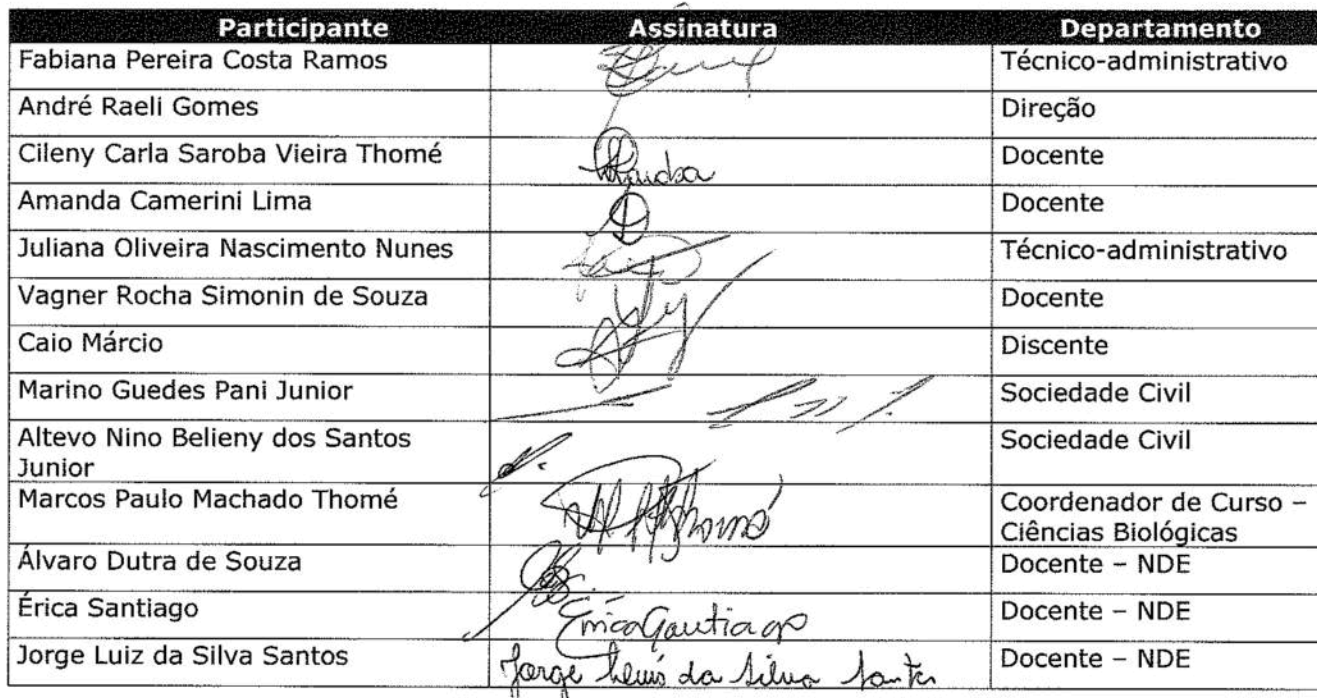 Participante Assinatura Departamento
Fabiana Pereira Costa Ramos Técnico-administrativo
André Raeli Gomes Direção
Cileny Carla Saroba Vieira Thomé Docente
Amanda Camerini Lima Docente
Juliana Oliveira Nascimento Nunes Técnico-administrativo
Vagner Rocha Simonin de Souza Docente
Caio Márcio Discente
Marino Guedes Pani Junior Sociedade Civil
Altevo Nino Belieny dos Santos Sociedade Civil
Junior
Marcos Paulo Machado Thomé Coordenador de Curso –
Ciências Biológicas
Álvaro Dutra de Souza Docente – NDE
Érica Santiago Érica Santiago Docente – NDE
Jorge Luiz da Silva Santos Jorge Luis da Silva Santos Docente – NDE